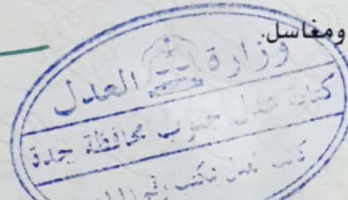 ومغاسل.
وزارة العدل
كتابة عدل جنوب محافظة جدة
كاتب عدل مكتب رقم